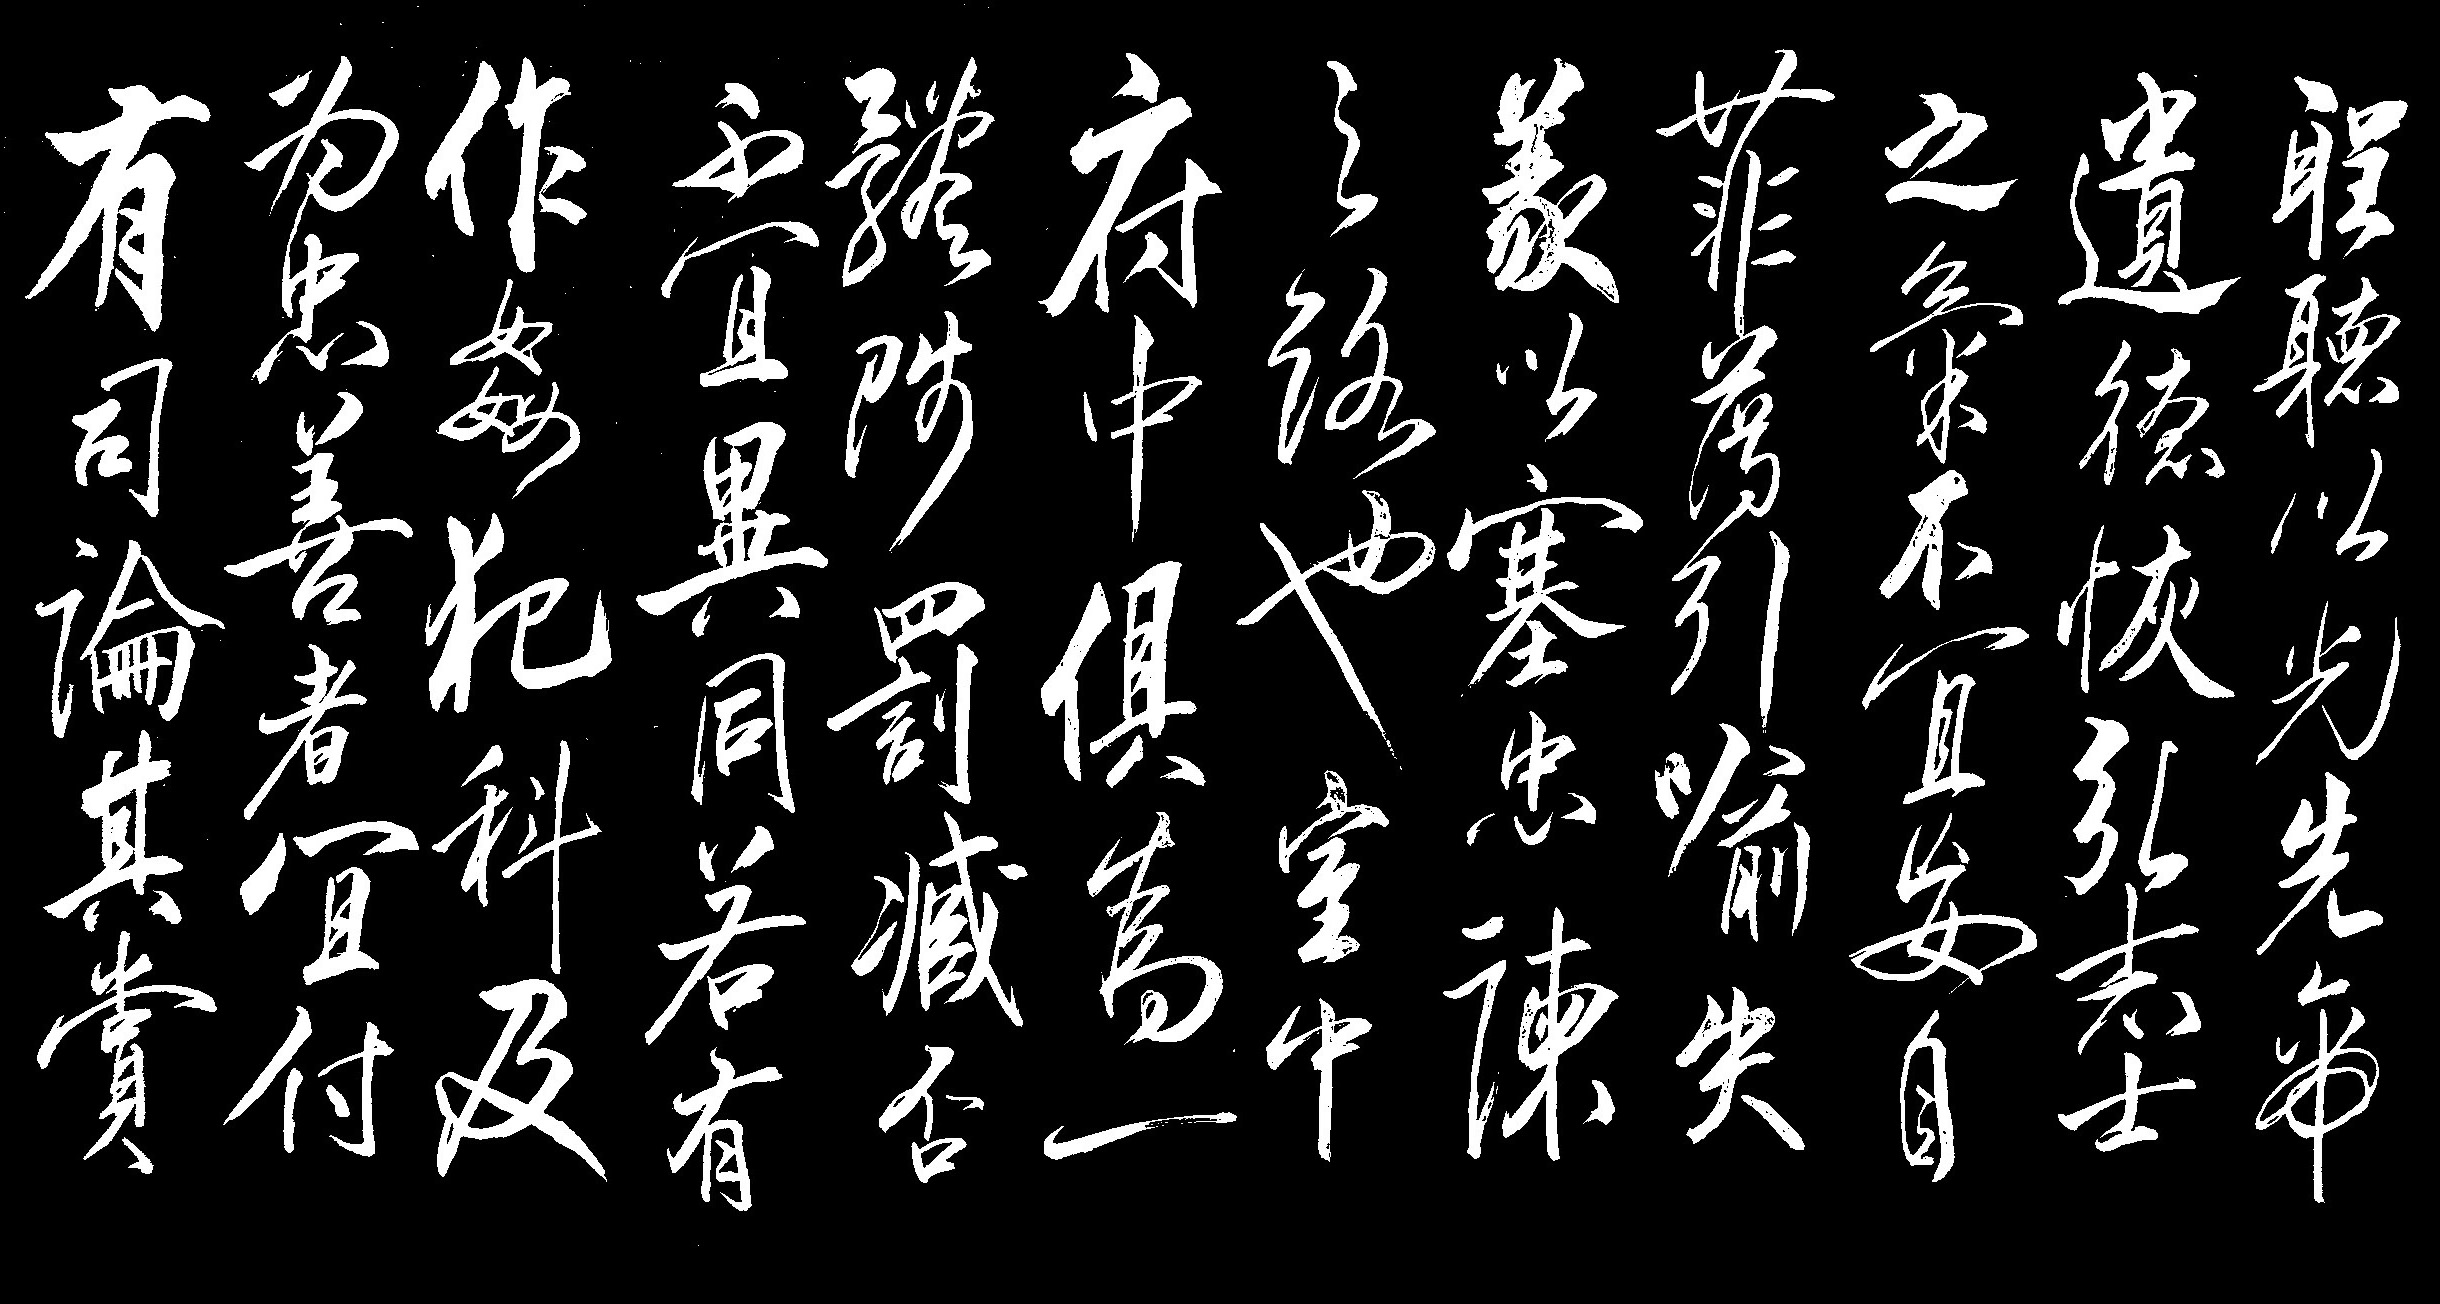 聖聽以光先帝
遺德恢弘志士
之氣不宜妄自
菲薄引喻失
義以塞忠諫
之路也宮中
府中俱為一
體陟罰臧否
不宜異同若有
作姦犯科及
為忠善者宜付
有司論其賞